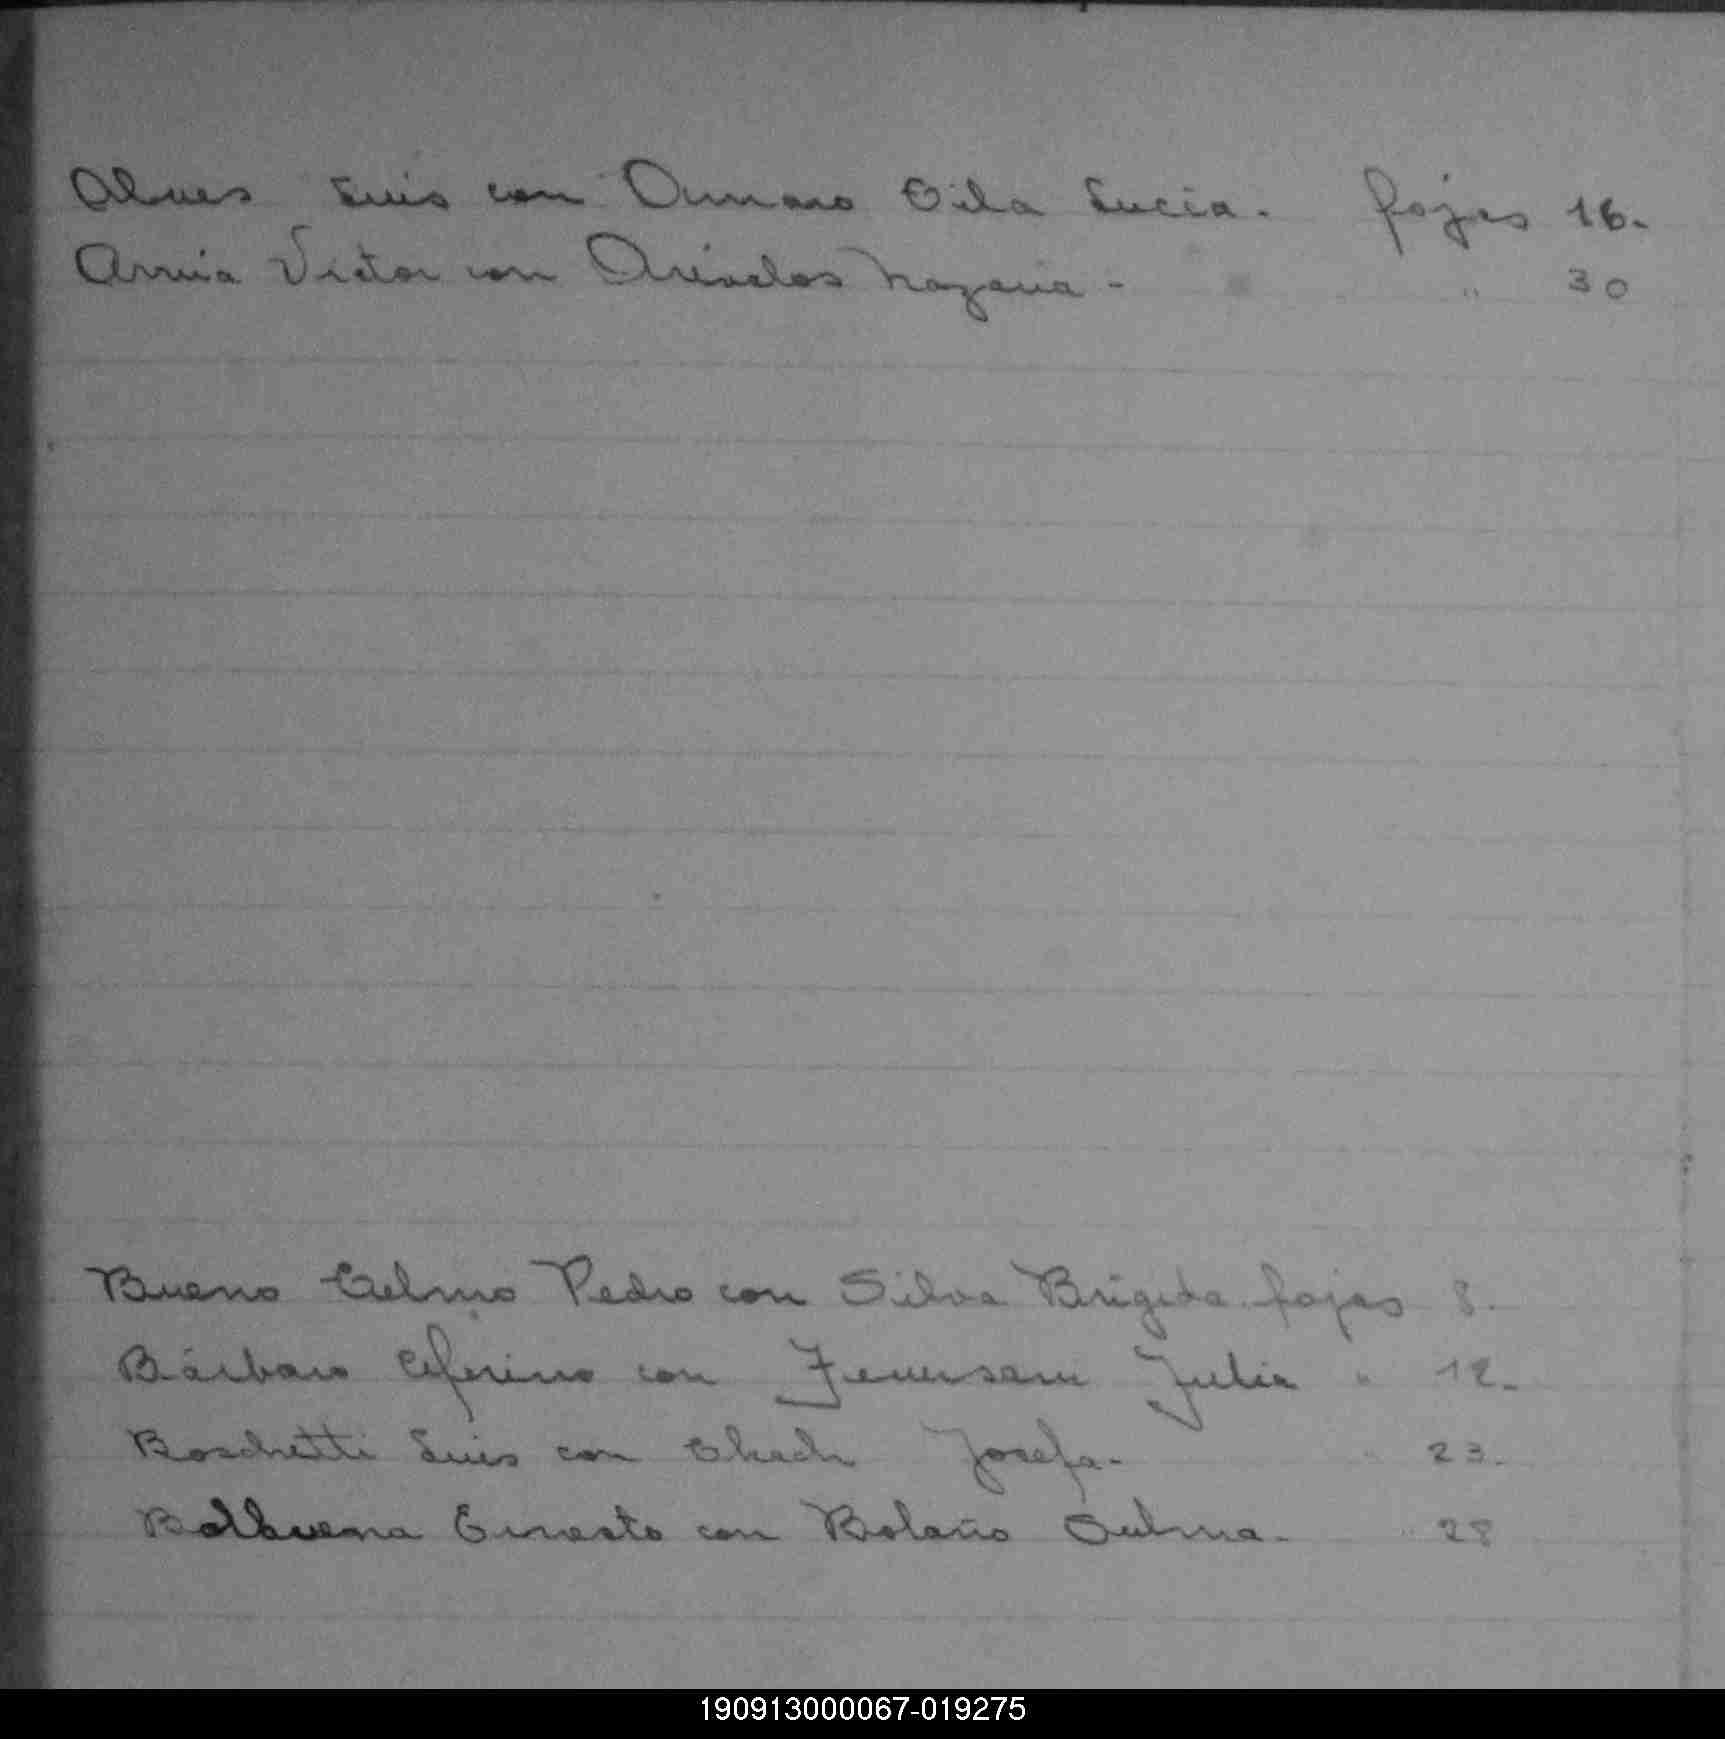 Alves Luis con Amaro Eila Lucia. fojas 16.
Arrua Victor con Arévalos Nazaria - " 30
Bueno Telmo Pedro con Silva Brígida fojas 8.
Bárbaro Ceferino con Julia " 12.
Boschetti Luis con Josefa. 23.
Balbuena Ernesto con Bolaño Sulma. " 28
190913000067-019275